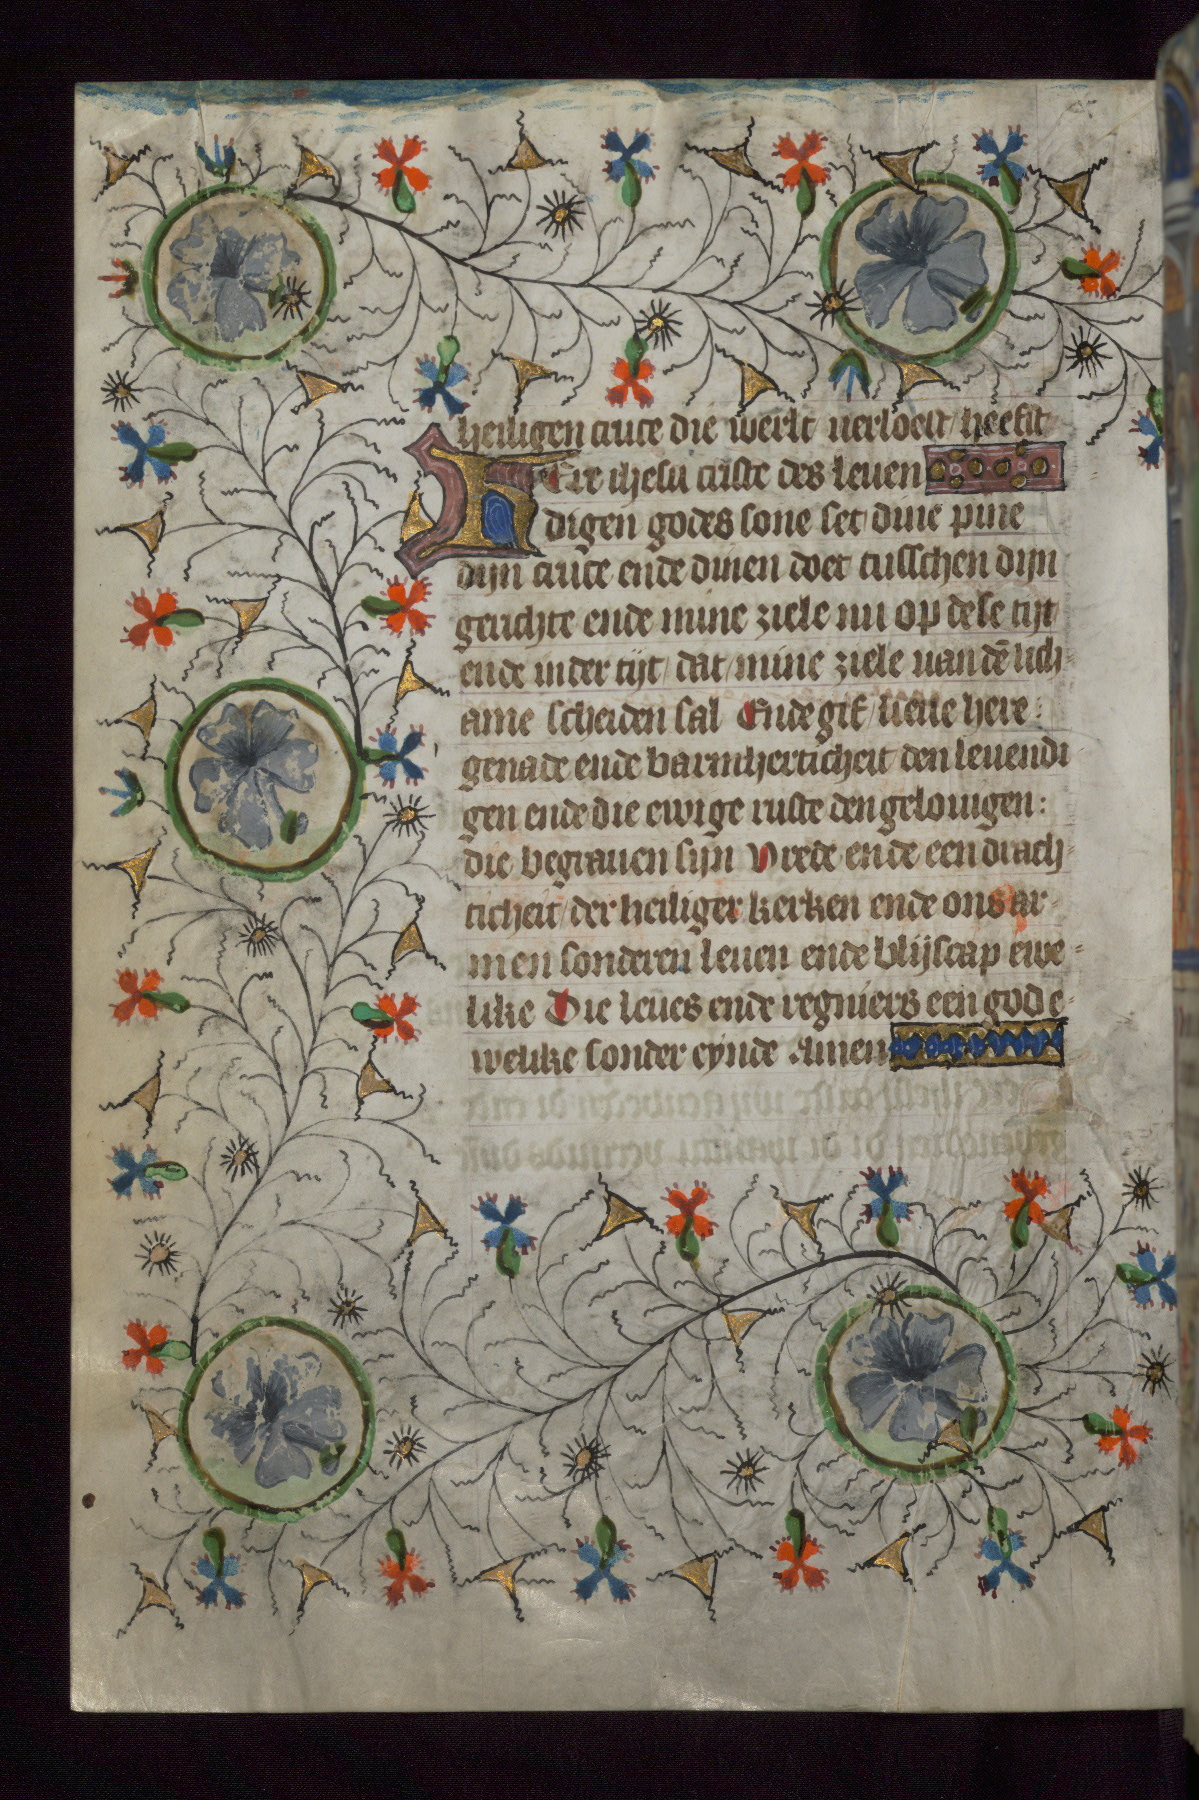 heiligen cruce die werlt verloest heefst
Ere ihesu criste des leuen
digen godes sone set dine pine
dijn cruce ende dinen doet tusschen dijn
gerichte ende mine ziele nu op dese tijt
ende inder tijt dat mine ziele uan dē lich
ame scheiden sal Ende gif lieue here:
genade ende barmherticheit den leuendi
gen ende die ewige ruste den gelouigen:
die begrauen sijn Vrede ende een drach
ticheit der heiliger kerken ende ons ar
men sonderen leuen ende blijscap ewe
like Die leues ende regniers een god e
welike sonder eynde Amen